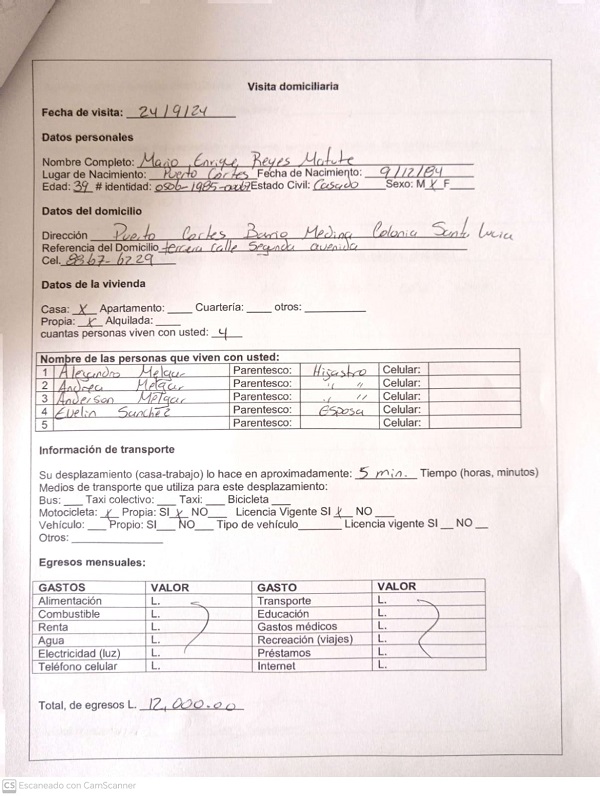 Visita domiciliaria
Fecha de visita: 24/9/24
Datos personales
Nombre Completo: Mario Enrique Reyes Matute
Lugar de Nacimiento: Puerto Cortes Fecha de Nacimiento: 9/12/84
Edad: 39 # identidad: Estado Civil: Casado Sexo: M X F
Datos del domicilio
Dirección Puerto Cortes Barrio Medina Colonia Santa Lucia
Referencia del Domicilio tercera calle Segunda avenida
Cel. 8367-6229
Datos de la vivienda
Casa: X Apartamento: Cuartería: otros:
Propia: X Alquilada:
cuantas personas viven con usted: 4
Nombre de las personas que viven con usted:
1 Alejandro Melgar Parentesco: Hijastro Celular:
2 Andrea Melgar Parentesco: " " Celular:
3 Anderson Melgar Parentesco: " " Celular:
4 Evelin Sanchez Parentesco: Esposa Celular:
5 Parentesco: Celular:
Información de transporte
Su desplazamiento (casa-trabajo) lo hace en aproximadamente: 5 min. Tiempo (horas, minutos)
Medios de transporte que utiliza para este desplazamiento:
Bus: Taxi colectivo: Taxi: Bicicleta
Motocicleta: X Propia: SI X NO Licencia Vigente SI X NO
Vehículo: Propio: SI NO Tipo de vehículo Licencia vigente SI NO
Otros:
Egresos mensuales:
GASTOS VALOR GASTO VALOR
Alimentación L. Transporte L.
Combustible L. Educación L.
Renta L. Gastos médicos L.
Agua L. Recreación (viajes) L.
Electricidad (luz) L. Préstamos L.
Teléfono celular L. Internet L.
Total, de egresos L. 12,000.00
CS Escaneado con CamScanner